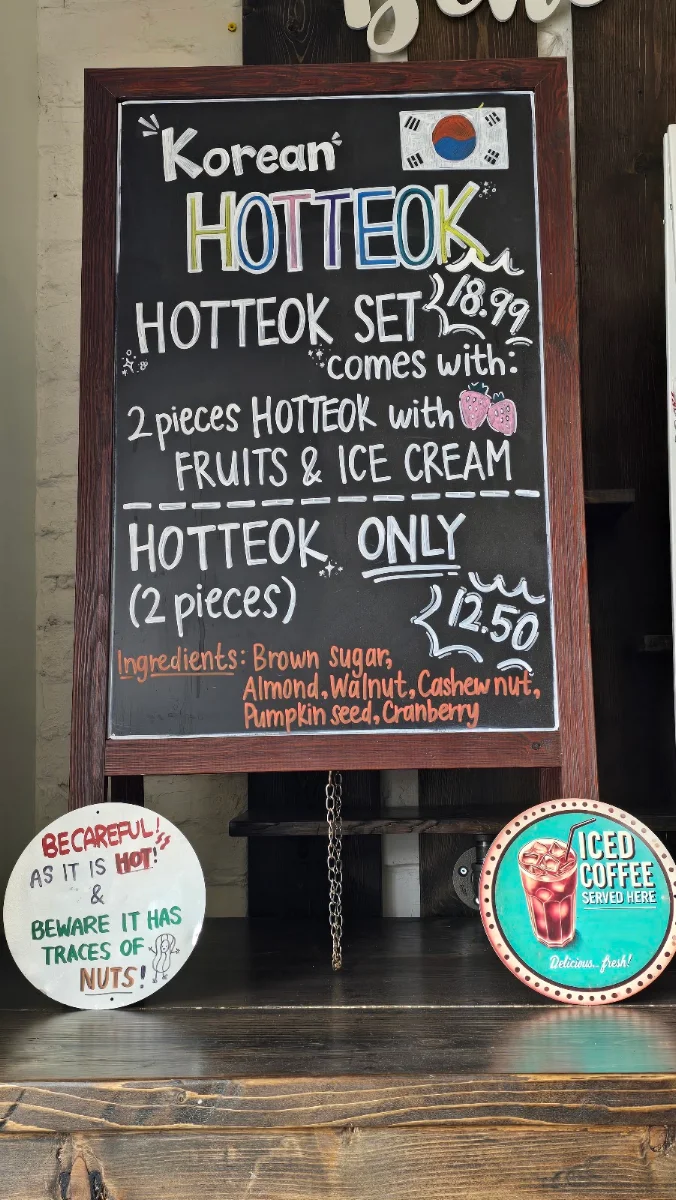 Korean
HOTTEOK
HOTTEOK SET 18.99
comes with:
2 pieces HOTTEOK with
FRUITS & ICE CREAM
HOTTEOK ONLY
(2 pieces) 12.50
Ingredients: Brown sugar,
Almond, Walnut, Cashew nut,
Pumpkin seed, Cranberry
BE CAREFUL!
AS IT IS HOT!
&
BEWARE IT HAS
TRACES OF
NUTS!
ICED
COFFEE
SERVED HERE
Delicious.. fresh!